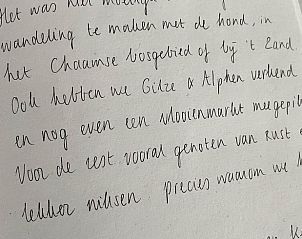 Het was niet moeilijk
wandeling te maken met de hond, in
het Chaamse bosgebied of bij 't Zand.
Ook hebben we Gilze & Alphen verkend
en nog even een vlooienmarkt meegepi
Voor de rest vooral genoten van rust
lekker niksen. Precies waarom we